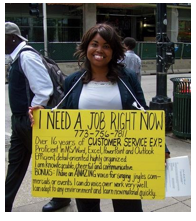 I NEED A JOB RIGHT NOW
Over 16 years of CUSTOMER SERVICE EXP.
Proficient in MS Word, Excel, PowerPoint and Outlook
Efficient, detail-oriented, highly organized
am knowledgeable, cheerful and communicative
BONUS: I have an AMAZING voice for singing, jingles, comm-
ercials or events. I can do voice over work very well.
can adapt to any environment and learn new material quickly.